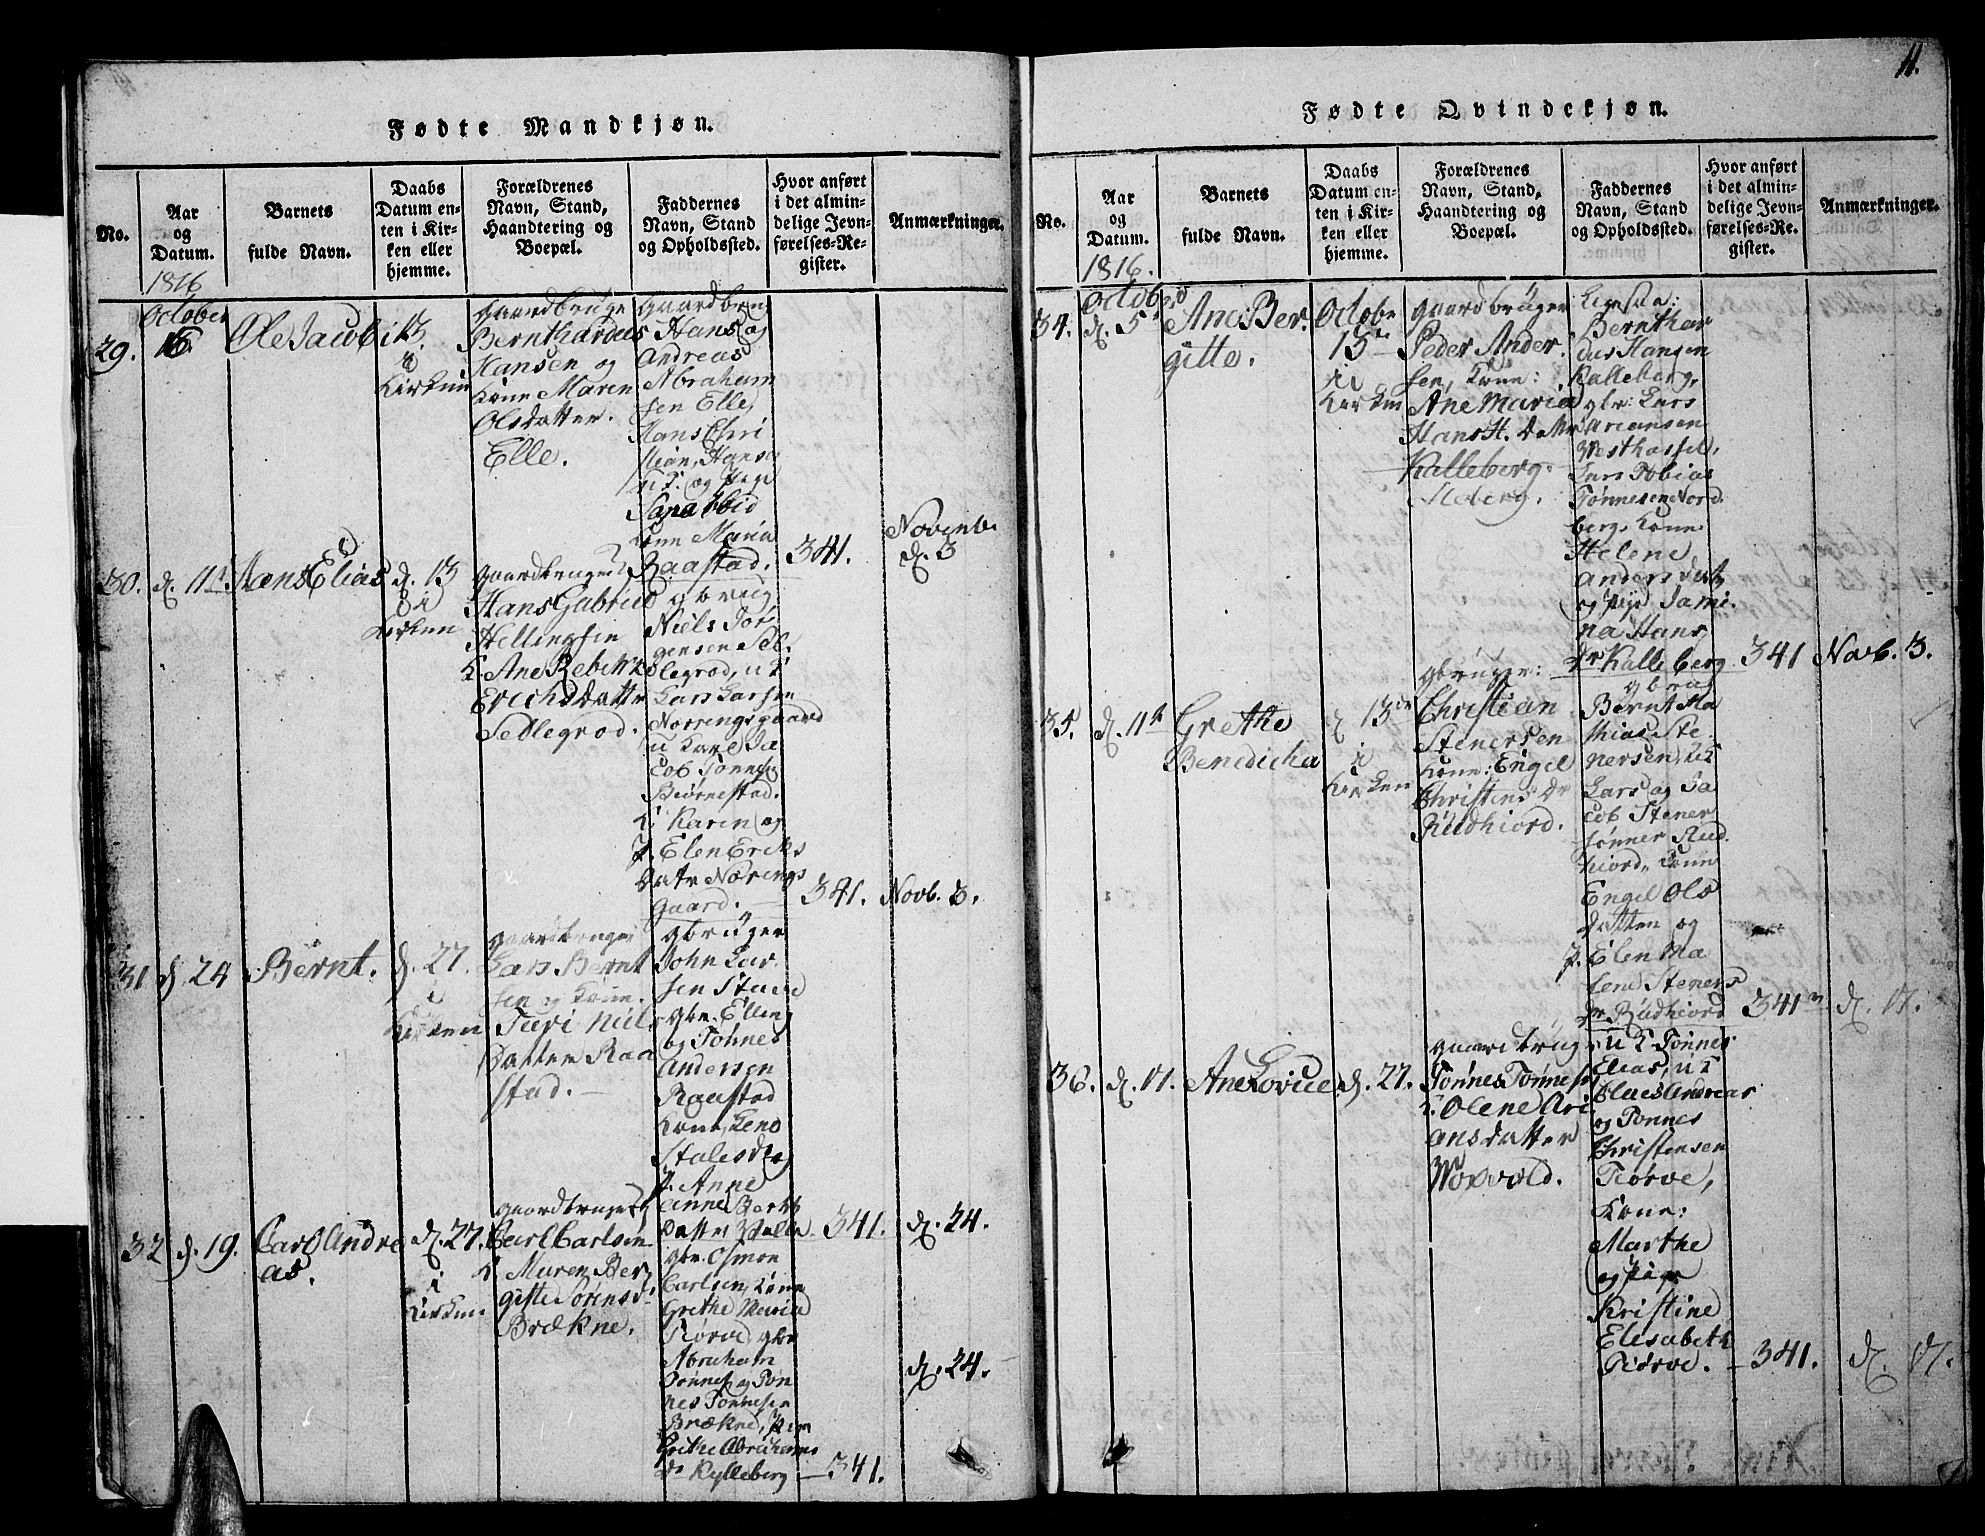 Fødte Mandkjøn.
No.
Aar
og
Datum.
1816
Barnets
fulde Navn.
Daabs
Datum en-
ten i Kir-
ken eller
hjemme.
Forældrenes
Navn, Stand,
Haandtering og
Boepæl.
Faddernes
Navn, Stand
og Opholdssted.
Hvor anført
i det almin-
delige Jevn-
førelses-Re-
gister.
Anmærkninger.
29.
October
Ole Jacob
13.
i
Kirken
Hansen og
Kone Maren
Olsdatter.
Elle.
Hans og
Andreas
Abraham
sen Elle,
Hans Chri
stian, Hanse
og Pige
Kone Maria
Raastad.
341.
Novemb.
d. 3
30.
d. 11t
Hans Elias
d. 13
i
Kirken
gaardbruger
Hans Gabriel
Hellingsen
K. Ane Rebekka
Erichsdatter
Sedlegrod.
gbrug
Niels Jør
gensen Sel
legrod, u K
Lars Larsen
Norringsgaard
u Karl Ja
cob Tønnes
Biørnestad.
K. Karen og
P. Elen Eriks
Datr Nærings
gaard.
341.
Novb. 3.
31
d. 24
Bernt.
d. 27.
i
Kirken
gaardbruger
Lars Bernt
sen og Kone.
Turi Niels
Datter Raa
stad.
gbruger
John Lar
sen Stave
gbr. Ellen
og Tønnes
Andersen
Raastad
Kone, Lene
P. Anne
Anne Bernts
Datter
341.
d. 24.
32
d. 19.
Carl Andre
as.
d. 27.
i
Kirken.
gaardbruger
Carl Carlsen
K. Maren Ber
gitte Sørensd.
Brækne.
gbr. Osmon
Carlsen, Kone
Grethe Maria
Tiørve gbr
Abraham
Tønnes og Tøn
nes Tønnesen
Brækne,
Grethe Abrahams
Dr Kylleberg
341.
d. 24.
11.
Fødte Qvindekjøn.
No.
Aar
og
Datum.
1816.
Barnets
fulde Navn.
Daabs
Datum en-
ten i Kir-
ken eller
hjemme.
Forældrenes
Navn, Stand,
Haandtering og
Boepæl.
Faddernes
Navn, Stand
og Opholdssted.
Hvor anført
i det almin-
delige Jevn-
førelses-Re-
gister.
Anmærkninger.
34.
October
d. 5t
Ane Ber.
gitte.
Octobe
13de
i
Kirken
gaardbrüger
Peder Ander.
sen, Kone:
Ane Maria
Hans H. Datr
Kalleberg.
Bernthar
dus Hansen
Kalleberg,
gbr: Lars
Ariansen
Vesthassel,
Lars Tobias
Tønnesen Nord
berg, Kone
Helene
Andersdatr
og Pige Jami.
na Hans
Dr Kalleberg
341
Novb. 3.
35.
d. 11t
Grethe
Benedicha
d 13de
i
Kirken
gbruger:
Christian
Stenersen
Kone: Engel
Christens Dr
Rüdhiord.
gbrug
Bernt Ma
thias Ste
nersen, u K
Lars og Ja
cob Stener
sønner Rüd
hiord, Kone
Engel Ols
datter og
P. Elen Ma
lene Steners
Dr Rüdhiord
341
d. 17.
36.
d. 17.
Ane Lovise
d. 27.
gaardbrug
Tønnes Tønnesen
K. Olene Ari
ansdatter
u K Tønnes
Elias, u K
Claes Andreas
og Tønnes
Christensen
Tiørve,
Kone:
Marthe
og Pige
Kristine
Elisabeth
Tiørve.
341.
d. 17.